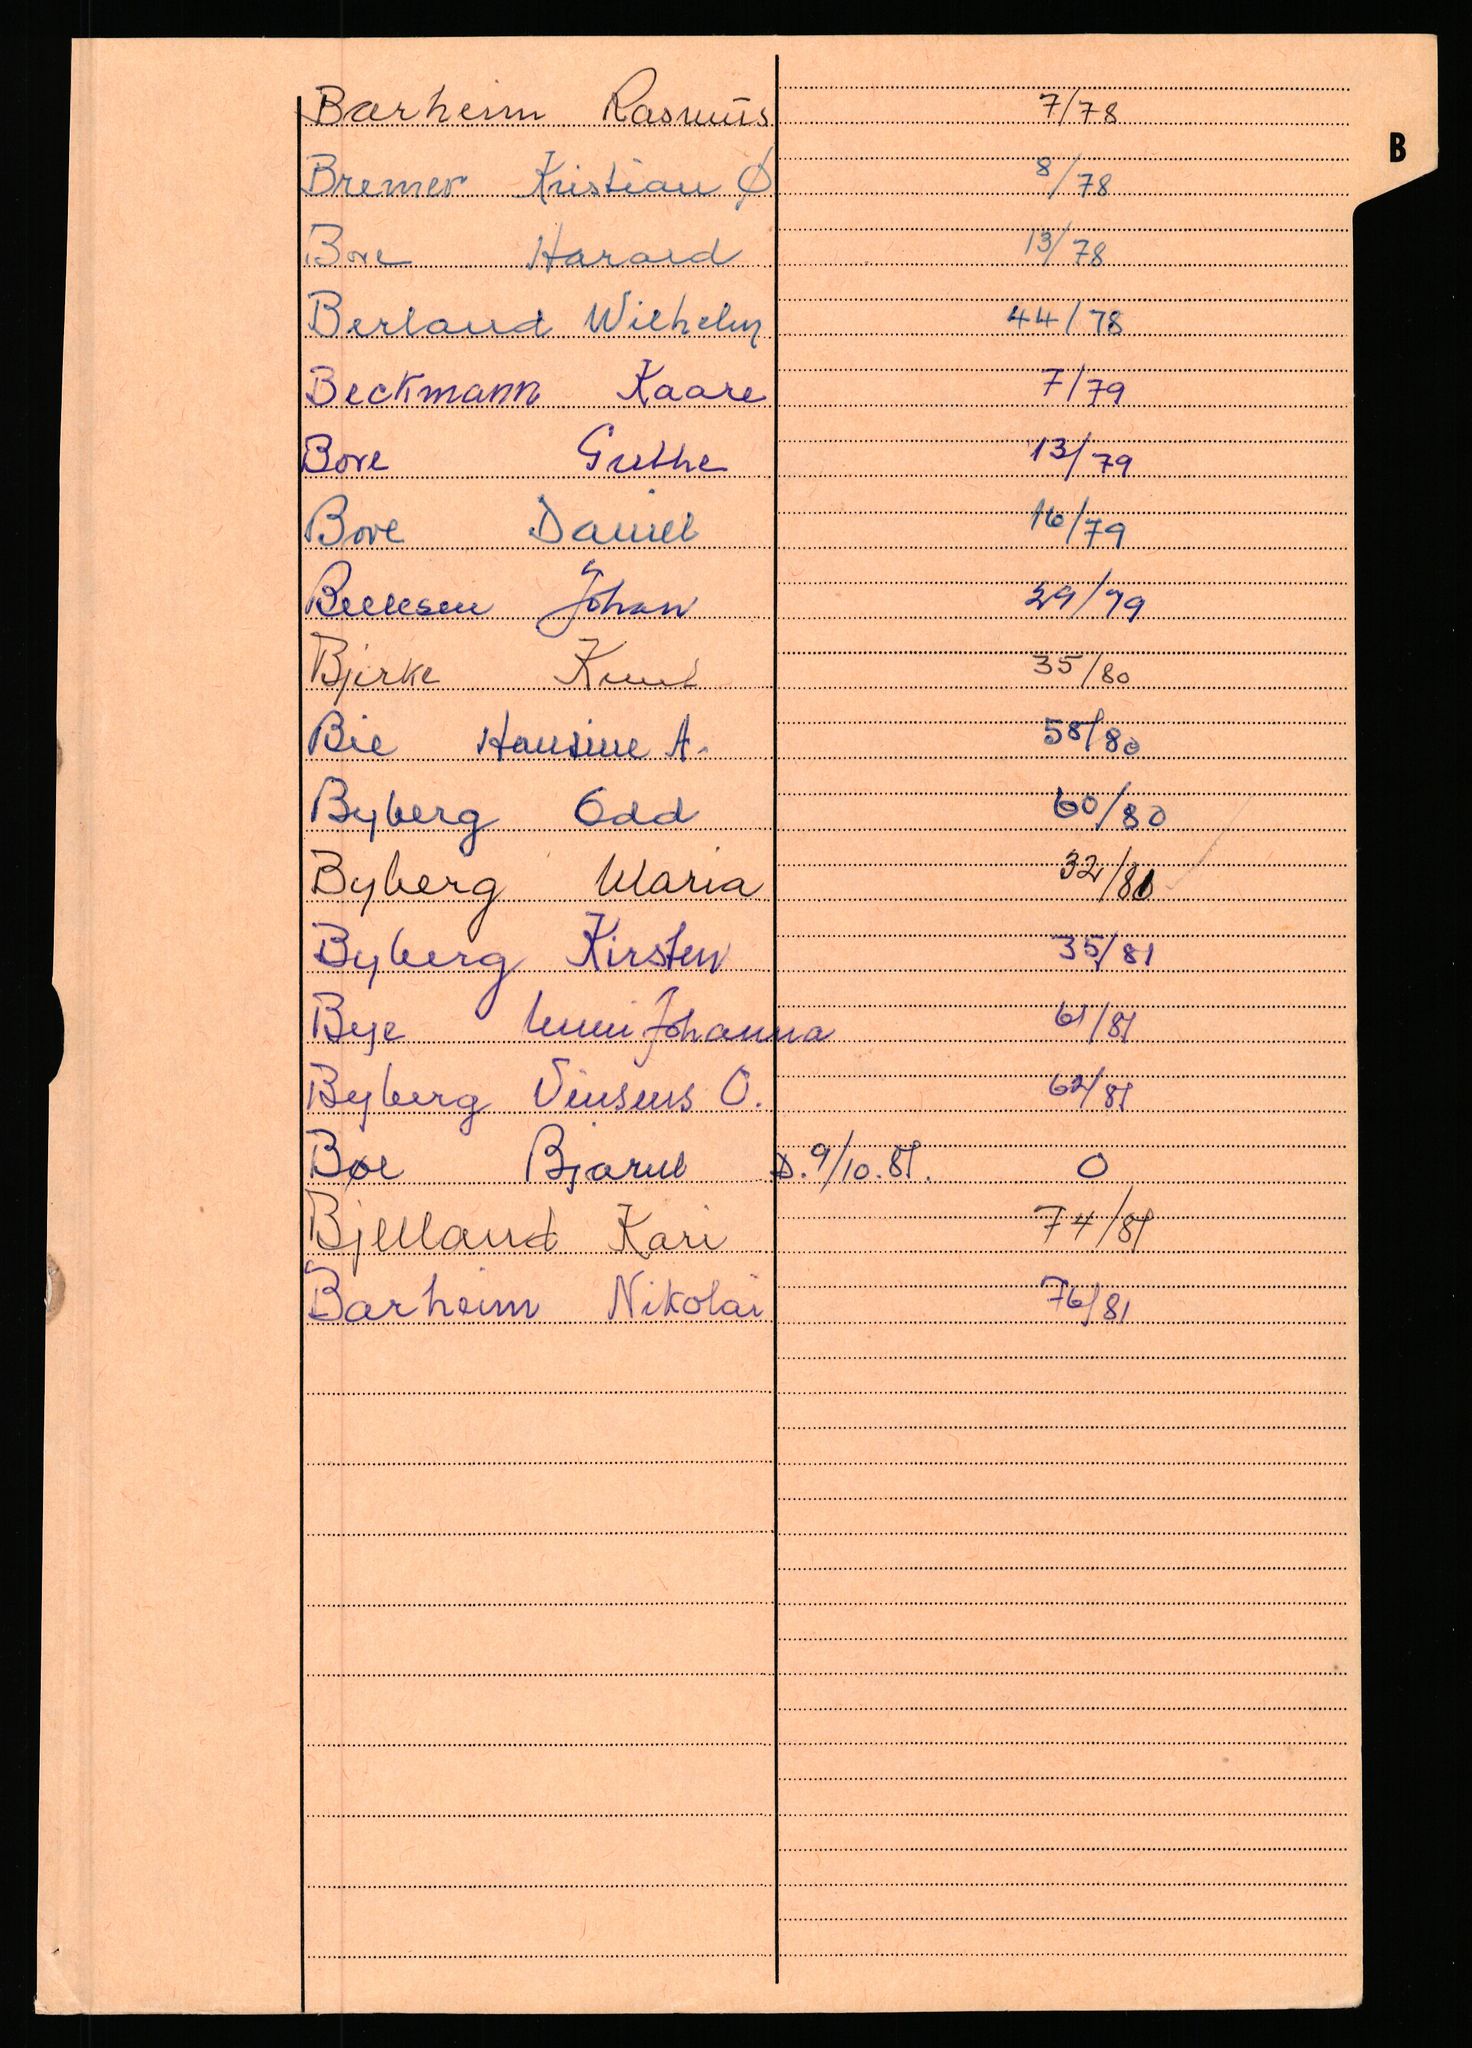 B
Barheim Rasmus 7/78
Bremer Kristian Ø 8/78
Bore Harald 13/78
Berland Wilhelm 44/78
Beckmann Kaare 7/79
Bore Grethe 13/79
Bore Daniel 16/79
Johan 29/79
Bjerke Knut 35/80
Bie Hansine A. 58/80
Byberg Odd 60/80
Byberg Maria 32/81
Byberg Kirsten 35/81
Bye Johanna 61/81
Byberg Vinsens O. 62/81
Bøe Bjarne D. 9/10.81. 0
Bjelland Kari 74/81
Barheim Nikolai 76/81